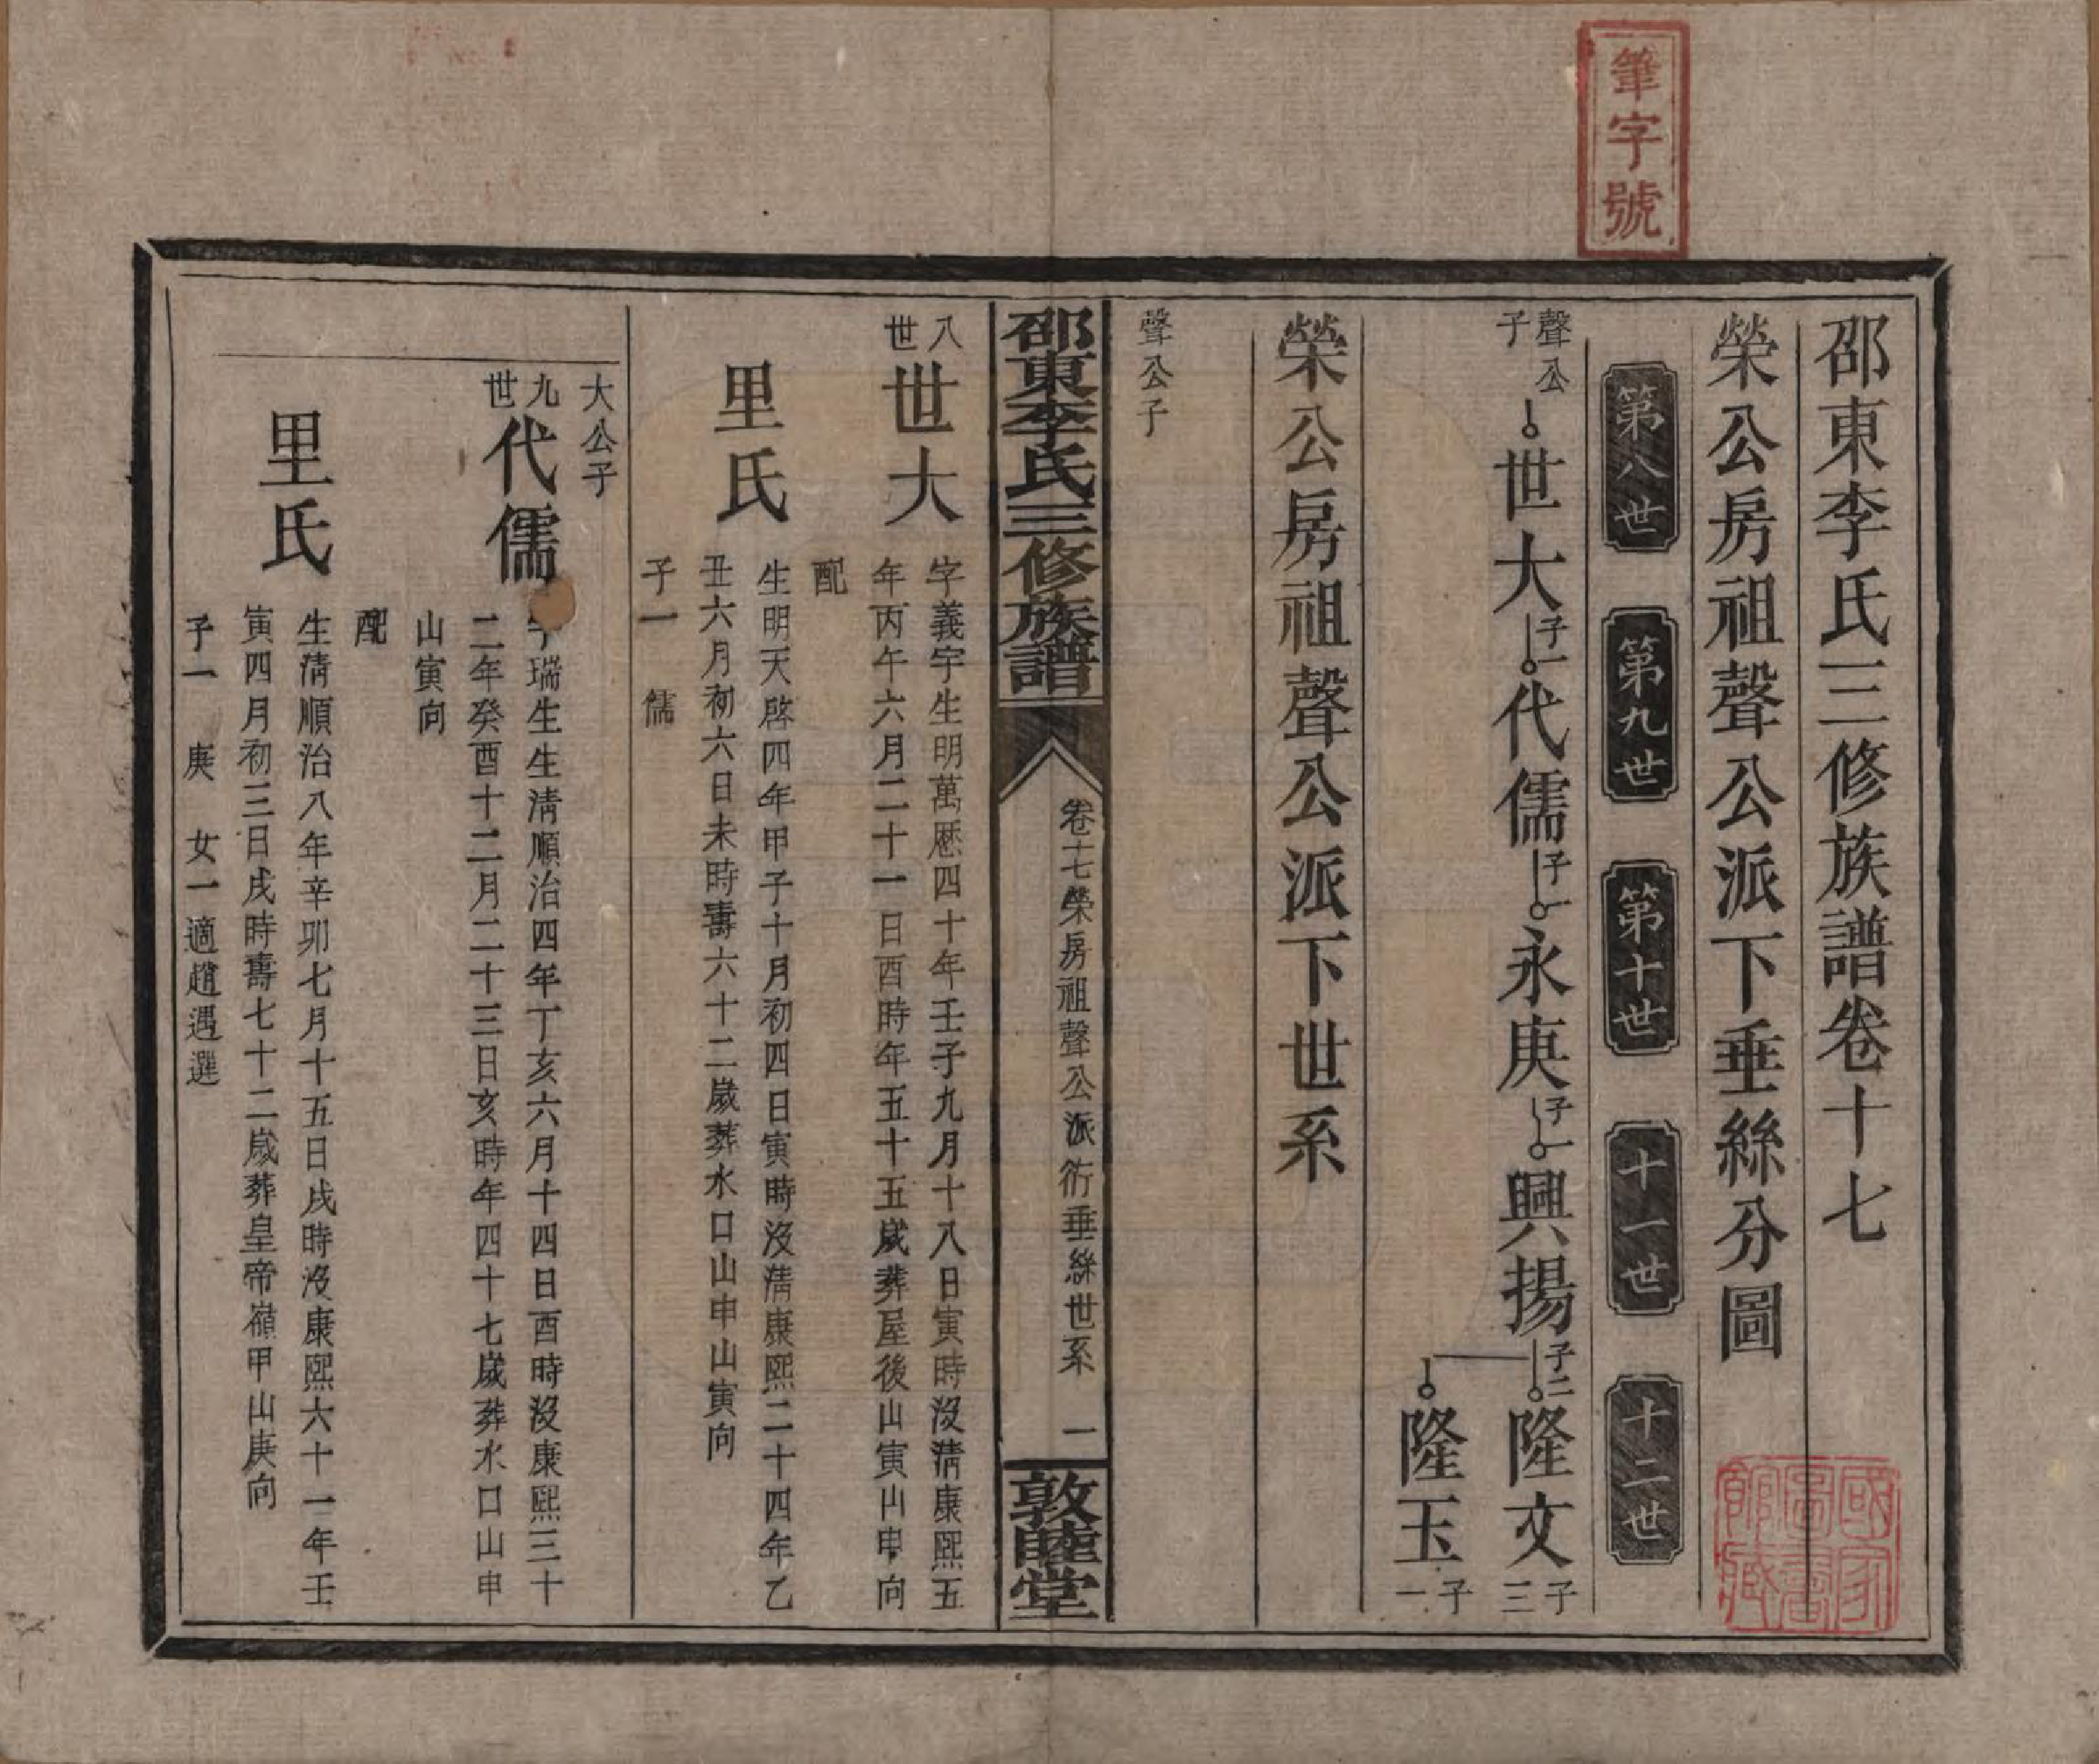 筆字號
邵東李氏三修族譜卷十七
榮公房祖聲公派下垂絲分圖
第八世
第九世
第十世
十一世
十二世
聲公子
世大 子一 代儒 子一 永庚 子一 興揚 子二 隆文 子三
隆玉 子一
榮公房祖聲公派下世系
聲公子
邵東李氏三修族譜
卷十七榮房祖聲公派衍垂絲世系
一
敦睦堂
八世
世大
字義宇生明萬歷四十年壬子九月十八日寅時沒清康熙五
年丙午六月二十一日酉時年五十五歲葬屋後山寅山申向
配
里氏
生明天啓四年甲子十月初四日寅時沒清康熙二十四年乙
丑六月初六日未時壽六十二歲葬水口山申山寅向
子一 儒
大公子
九世
代儒
字瑞生生清順治四年丁亥六月十四日酉時沒康熙三十
二年癸酉十二月二十三日亥時年四十七歲葬水口山申
山寅向
配
里氏
生清順治八年辛卯七月十五日戌時沒康熙六十一年壬
寅四月初三日戌時壽七十二歲葬皇帝嶺甲山庚向
子一 庚 女一適趙遇選
國家圖書館藏